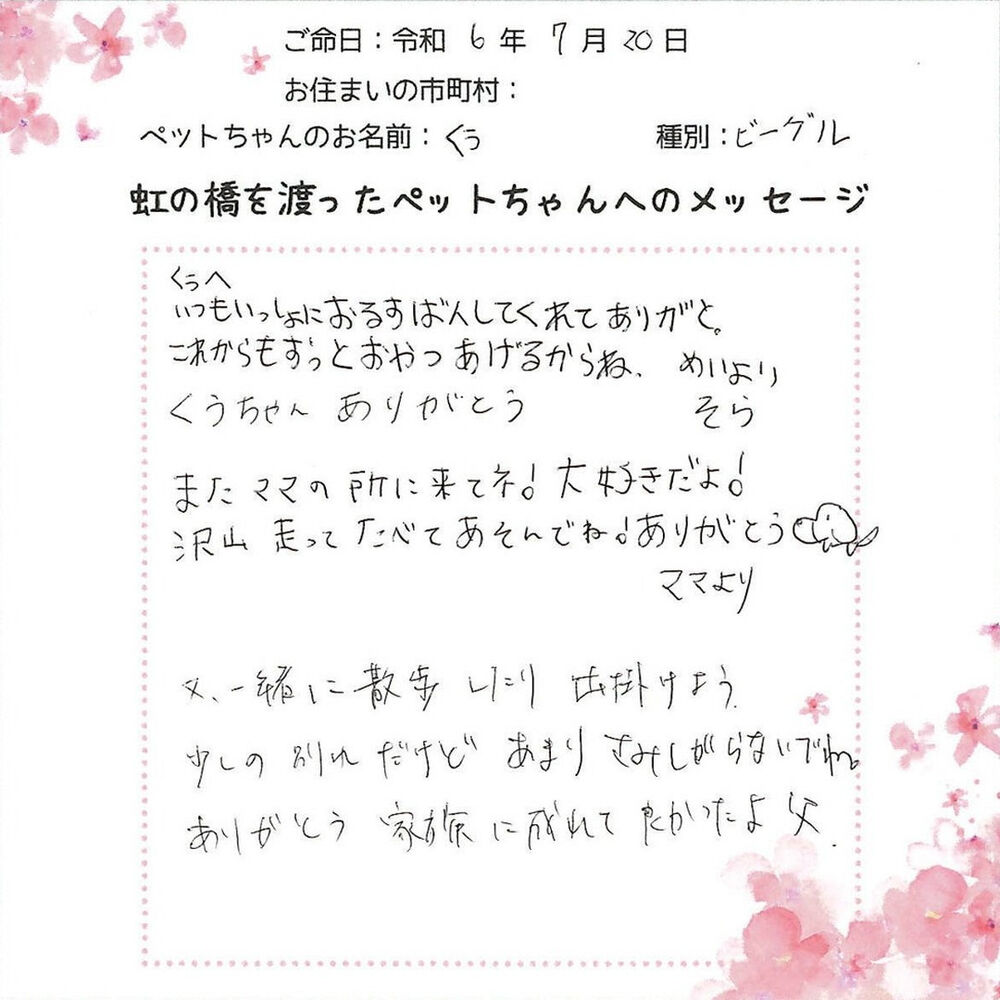 ご命日：令和 6 年 7 月 20 日
お住まいの市町村：
ペットちゃんのお名前：くぅ 種別：ビーグル
虹の橋を渡ったペットちゃんへのメッセージ
くぅへ
いつもいっしょにおるすばんしてくれてありがと。
これからもずっとおやつあげるからね、 めいより
くうちゃん ありがとう そら
またママの所に来てネ！大好きだよ！
沢山 走って たべて あそんでね！ありがとう
ママより
又、一緒に散歩したり 出掛けよう。
少しの別れだけど あまりさみしがらないでね。
ありがとう 家族に成れて良かったよ 父